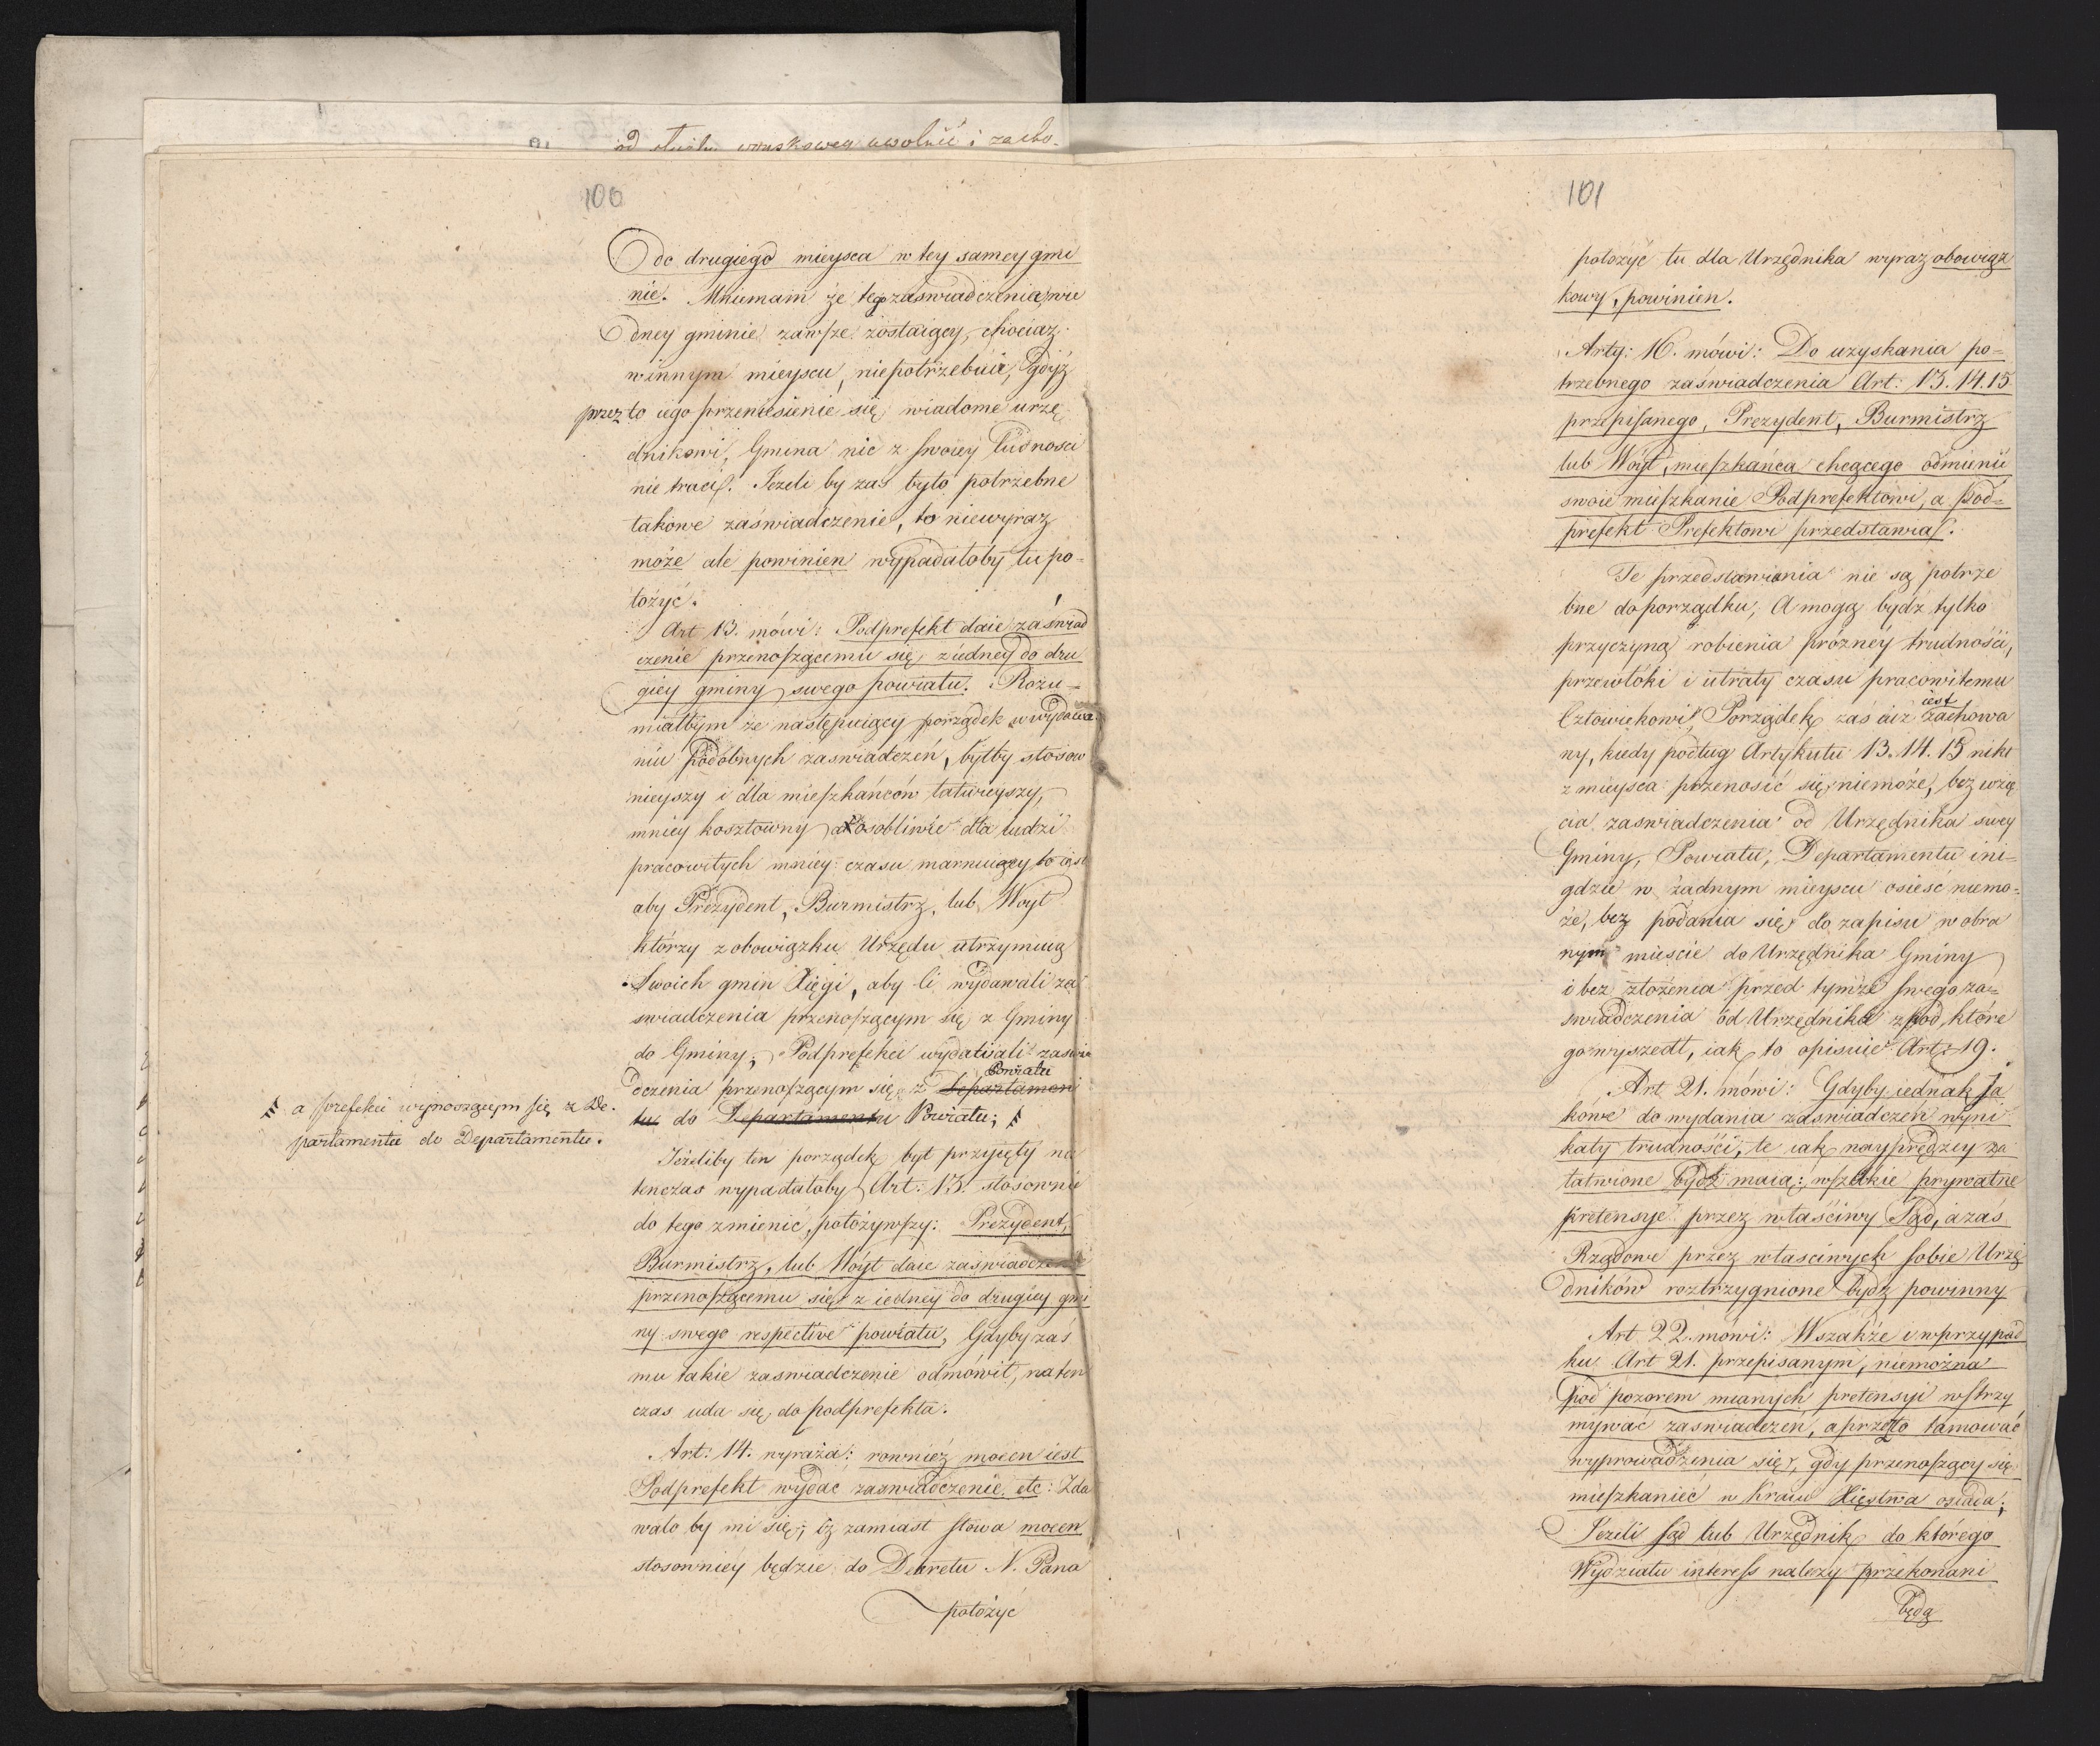 od służby woyskowey uwolnić i zacho-
100
do drugiego mieysca w tey samey gmi
nie. Mniemam że tego zaswiadczenia, w ie
dney gminie zawsze zostaiący, chociaz
w innym mieyscu, niepotrzebuie, gdyż
przez to iego przeniesienie się, wiadome urzę
dnikowi, Gmina nic z swoiey ludnosci
nie traci. Jezeli by zaś było potrzebne
takowe zaświadczenie, to niewyraz
może ale powinien wypadałoby tu po-
łożyć.
Art 13. mówi: Podprefekt daie zaświad
czenie przenoszącemu się z iedney do dru
giey gminy swego powiatu. Rozu-
miałbym że następuiący porządek w wydawa
niu podobnych zaswiadczeń, byłby stosow
nieyszy i dla mieszkańców łatwieyszy,
mniey kosztowny a osobliwie dla ludzi
pracowitych mniey czasu marnuiący to iest
aby Prezydent, Burmistrz, lub Woyt
którzy z obowiązku Urzędu utrzymuią
Swoich gmin Xięgi, aby li wydawali za
swiadczenia przenoszącym się z Gminy
do Gminy; Podprefekci wydawali zaswia
Powiatu
dczenia przenoszącym się z Departamen
tu do Departamentu Powiatu;
a prefekci wynoszącym się z De-
partamentu do Departamentu.
Jeżeliby ten porządek był przyięty na
tenczas wypadałoby Art: 13. stosownie
do tego zmienić, położywszy: Prezydent,
Burmistrz, lub Woyt daie zaswiadczenie
przenoszącemu się z iedney do drugiey gmi
ny swego respective powiatu, Gdyby zaś
mu takie zaswiadczenie odmówił, naten
czas uda się do podprefekta.
Art: 14. wyraża: rownież mocen iest
Podprefekt wydać zaswiadczenie etc: Zda
wało by mi się, iż zamiast słowa mocen
stosowniey będzie do Dekretu N. Pana
położyć
101
położyć tu dla Urzędnika wyraz obowiąz
kowy, powinien.
Arty: 16. mówi: Do uzyskania po-
trzebnego zaświadczenia Art: 13. 14. 15
przepisanego, Prezydent, Burmistrz
lub Wóyt, mieszkańca chcącego odmienić
swoie mieszkanie Podprefektowi, a Pod-
prefekt Prefektowi przedstawia.
Te przedstawiania nie są potrze
bne do porządku, A mogą bydź tylko
przyczyną robienia prózney trudności,
przewłóki i utraty czasu pracowitemu
iest
Człowiekowi, Porządek zaś iuż zachowa
ny, kiedy podług Artykułu 13. 14. 15 nikt
z mieysca przenosić się niemoże, bez wzię
cia zaswiadczenia od Urzędnika swey
Gminy, Powiatu, Departamentu i ni-
gdzie w żadnym mieyscu osieść niemo-
że, bez podania się do zapisu w obra
nym mieście do Urzędnika Gminy
i bez złożenia przed tymże swego za-
swiadczenia od Urzędnika z pod które
go wyszedł, iak to opisuie Art: 19.
Art 21. mówi: Gdyby iednak Ja
kowe do wydania zaświadczeń wyni
kały trudności, te iak nayprędzey za
łatwione bydź maią; wszelkie prywatne
pretensye przez właściwy Sąd, a zaś
Rządowe przez własciwych sobie Urzę
dników roztrzygnione bydz powinny
Art 22. mówi: Wszakże i w przypad
ku Art 21. przepisanym, niemożna
pod pozorem mianych pretensyi wstrzy
mywać zaswiadczeń, a przeto tamować
wyprowadzenia się, gdy przenoszący się
mieszkaniec w kraiu Xięstwa osiada;
Jezeli sąd lub Urzędnik do którego
Wydziału interess nalezy przekonani
będą